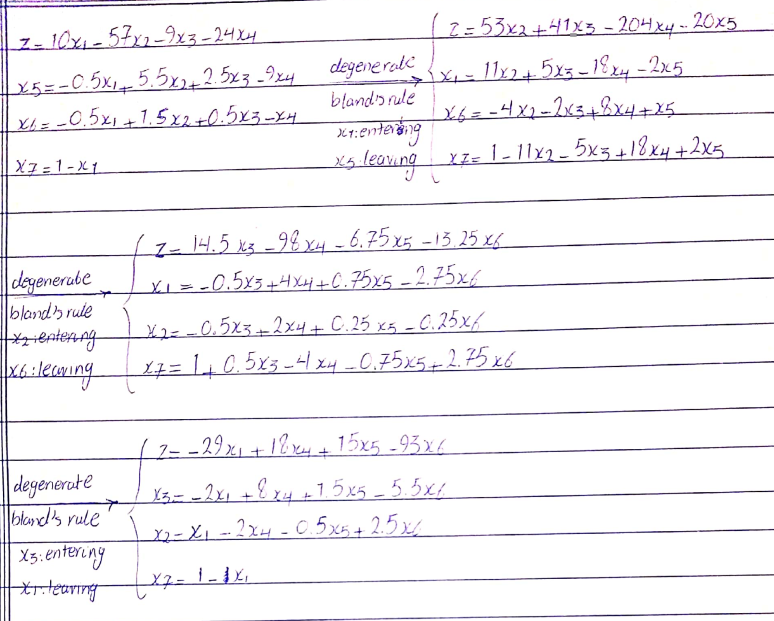 z=10x1-57x2-9x3-24x4
x5=-0.5x1+5.5x2+2.5x3-9x4
x6=-0.5x1+1.5x2+0.5x3-x4
x7=1-x1
degenerate
bland's rule
x1:entering
x5:leaving
z=53x2+41x3-204x4-20x5
x1=11x2+5x3-18x4-2x5
x6=-4x2-2x3+8x4+x5
x7=1-11x2-5x3+18x4+2x5
degenerate
bland's rule
x2:entering
x6:leaving
z=14.5x3-98x4-6.75x5-13.25x6
x1=-0.5x3+4x4+0.75x5-2.75x6
x2=-0.5x3+2x4+0.25x5-0.25x6
x7=1+0.5x3-4x4-0.75x5+2.75x6
degenerate
bland's rule
x3:entering
x1:leaving
z=-29x1+18x4+15x5-93x6
x3=-2x1+8x4+1.5x5-5.5x6
x2=x1-2x4-0.5x5+2.5x6
x7=1-1x1